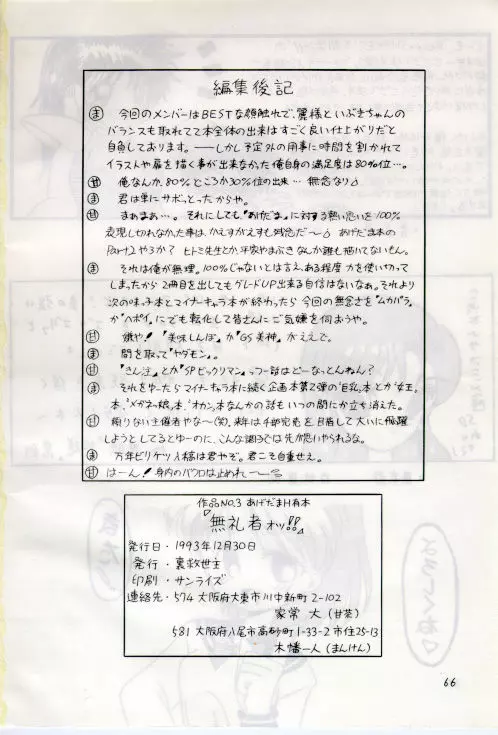 編集後記
ま 今回のメンバーはBESTな顔触れで、麗様といぶきちゃんの
バランスも取れてて本全体の出来はすごく良い仕上がりだと
自負しております。――しかし予定外の用事に時間を割かれて
イラストや扉を描く事が出来なかった俺自身の満足度は80%位…。
甘 俺なんか、80%どころか30%位の出来… 無念なり
ま 君は単にサボっとったからや。
甘 まぁまぁ…。それにしても『あげだま』に対する熱い思いを100%
表現し切れなかった事は、かえすがえすも残念だ〜 あげだま本の
Part2やろか? ヒトミ先生とか、平家やまぶきなんか誰も描いてないもん。
ま それは俺が無理。100%じゃないとは言え、ある程度力を使い切って
しまったから2冊目を出してもグレードUP出来る自信はないなぁ。それより
次の味っ子本とマイナーキャラ本が終わったら今回の無念さを『ムカパラ』
か『ハポイ』にでも転化して皆さんにご気嫌を伺おうや。
甘 嫌や!『美味しんぼ』か『GS美神』がええで。
ま 間を取って『ヤダモン』。
甘 『きん注』とか『SPビックリマン』っつー話はどーなっとんねん?
ま それをゆーたらマイナーキャラ本に続く企画本第2弾の『巨乳』本とか『女王』
本、『メガネっ娘』本、『オカン』本なんかの話もいつの間にか立ち消えた。
甘 頼りない主催者やな〜(笑)。来年は千部完売を目指して大いに飛躍
しようとしてるとゆーのに、こんな調子では先が思いやられるな。
ま 万年ビリケツ入稿は君やぞ。君こそ自重せえ。
甘 はーん! 身内のバクロは止めれ〜
作品NO.3 あげだまH有本
『無礼者オッ!!』
発行日・1993年12月30日
発行・裏救世主
印刷・サンライズ
連絡先・574 大阪府大東市川中新町2-102
家常 大(甘茶)
581 大阪府八尾市高砂町1-33-2市住25-13
木幡一人(まんけん)
66